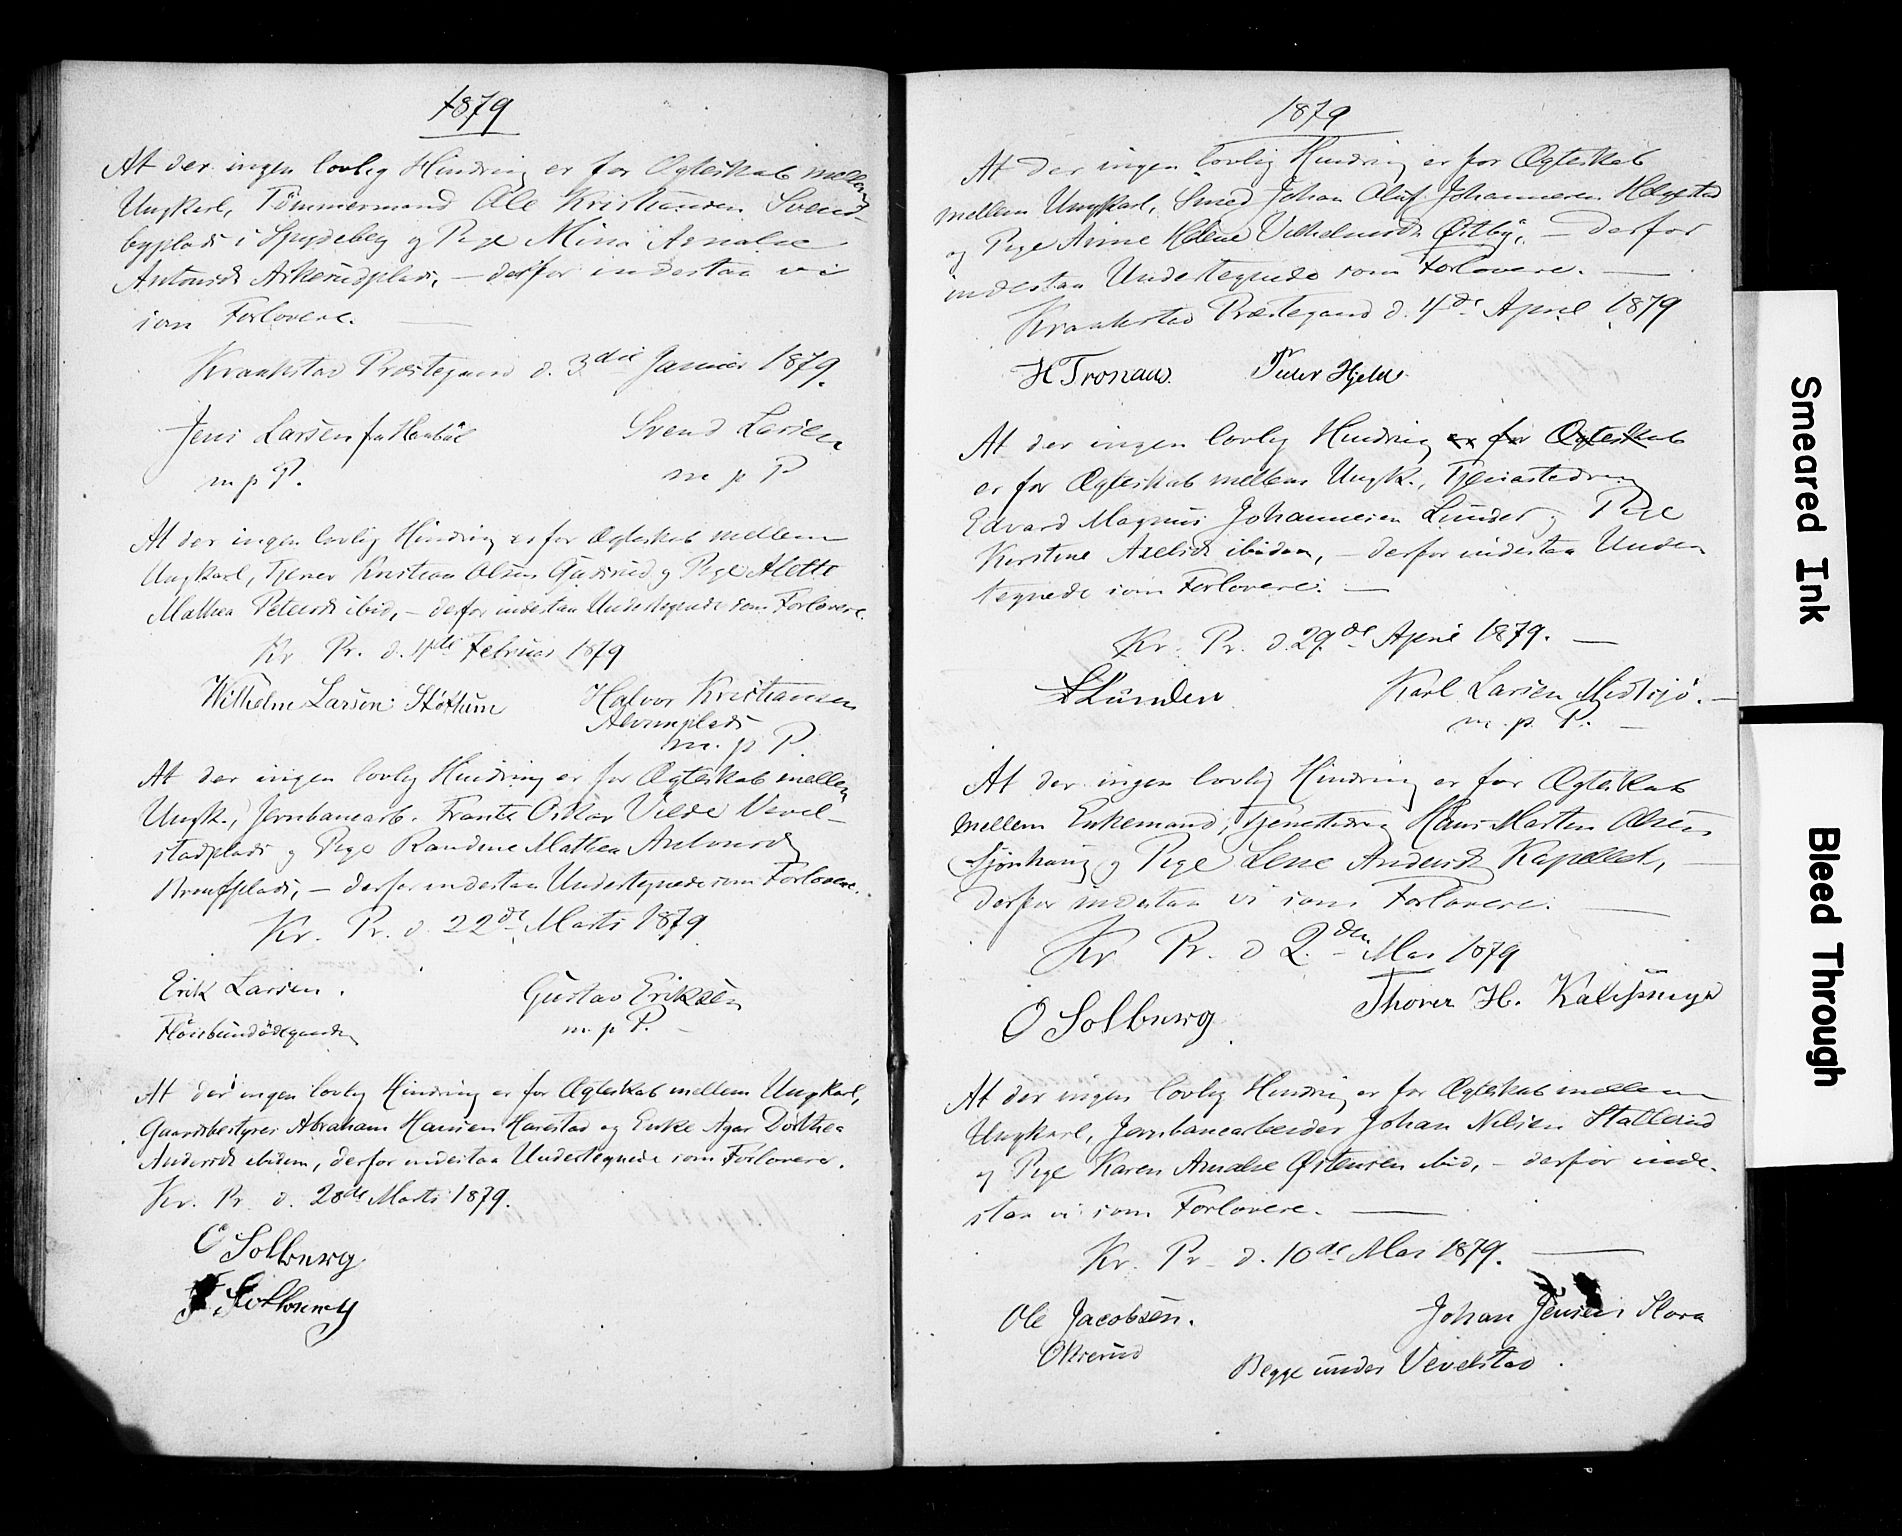 1879
At der ingen lovlig Hindring er for Ægteskab mellem
Ungkarl, Tömmermand Ole Kristiansen Svend-
byplads i Spydeberg og Pige Mina Amalie
Antonsdt Askerudplads, – derfor indestaa vi
som Forlovere.
Kraakstad Præstegaard d. 3die Januar 1879.
Jens Larsen fra Haabøl
Svend Larsen
m. p. P.
m p P
At der ingen lovlig Hindring er for Ægteskab mellem
Ungkarl, Tjener Kristian Olsen Gudsrud og Pige Alette
Mathea Petersdt ibid, – derfor indestaa Undertegnede som Forlovere.
Kr. Pr. d. 4de Februar 1879
Wilhelm Larsen Støttum
Halvor Kristiansen
Alvimplads
m. p P.
At der ingen lovlig Hindring er for Ægteskab mellem
Ungk., Jernbanearb. Frants Oskar Vilde Vevel-
stadplads og Pige Randine Mathea Antonsdt
– derfor indestaa Undertegnede som Forlovere.
Kr. Pr. d. 22de Marts 1879
Erik Larsen.
Gustav Eriksen
m. p P. –
At der ingen lovlig Hindring er for Ægteskab mellem Ungkarl,
Gaardsbestyrer Abraham Hansen Harestad og Enke Agar Dorthea
Andersdt ibidem, derfor indestaa Undertegnede som Forlovere.
Kr. Pr. d. 28de Marts 1879.
O Solberg
F. Solberg
1879
At der ingen lovlig Hindring er for Ægteskab
mellem Ungkarl, Smed Johan Oluf Johannesen Hægstad
og Pige Anne Helene Vilhelmsdt Østby, – derfor
indestaa Undertegnede som Forlovere. –
Kraakstad Præstegaard d. 4de April 1879
H Tronaas.
Peder Hjelde.
At der ingen lovlig Hindring er for Ægteskab
er for Ægteskab mellem Ungk., Tjenestedreng
Edvard Magnus Johannesen Lunder og Pige
Kirstine Axelsdt ibidem, – derfor indestaa Under-
tegnede som Forlovere. –
Kr. Pr. d. 29de April 1879. –
Lunden
Karl Larsen Midtsjø. –
m. p. P. –
At der ingen lovlig Hindring er for Ægteskab
mellem Enkemand, Tjenestedreng Hans Martin Olsen
og Pige Lene Andersdt Kapellet, –
derfor indestaa vi som Forlovere. –
Kr. Pr. d 2. den Mai 1879
O Solberg
Thorer H.
At der ingen lovlig Hindring er for Ægteskab mellem
Ungkarl, Jernbanearbeider Johan Nilsen Stallerud
og Pige Karen Amalie Østensen ibid, – derfor inde-
staa vi som Forlovere. –
Kr. Pr. d. 10de Mai 1879. –
Ole Jacobsen.
Johan Jensen Slora
Okserud
Begge under Vevelstad.
Smeared Ink
Bleed Through